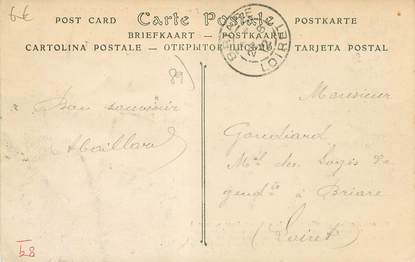 6€
POST CARD Carte Postale POSTKARTE
BRIEFKAART — POSTKAART
CARTOLINA POSTALE — ОТКРЫТОЕ ПИСЬМО — TARJETA POSTAL
BRIARE
LOIRET
89)
Bon souvenir
Monsieur
Mal des Logis de
gend ie à Briare
(Loiret)
58